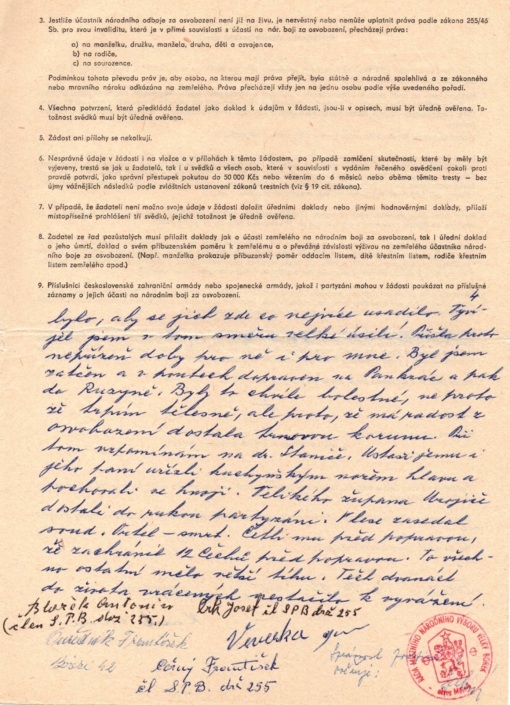 3. Jestliže účastník národního odboje za osvobození není již na živu, je nezvěstný nebo nemůže uplatnit práva podle zákona 255/46
Sb. pro svou invaliditu, která je v přímé souvislosti s účastí na nár. boji za osvobození, přecházejí práva:
a) na manželku, družku, manžela, druha, děti a osvojence,
b) na rodiče,
c) na sourozence.
Podmínkou tohoto převodu práv je, aby osoba, na kterou mají práva přejít, byla státně a národně spolehlivá a ze zákonného
nebo mravního nároku odkázána na zemřelého. Práva přecházejí vždy jen na jednu osobu podle výše uvedeného pořadí.
4. Všechna potvrzení, která předkládá žadatel jako doklad k údajům v žádosti, jsou-li v opisech, musí být úředně ověřena. To-
tožnost svědků musí být úředně ověřena.
5. Žádost ani přílohy se nekolkují.
6. Nesprávné údaje v žádosti i na vložce a v přílohách k těmto žádostem, po případě zamlčení skutečností, které by měly být
vyjeveny, trestá se jak u žadatelů, tak i u svědků a všech osob, které v souvislosti s vydáním řečeného osvědčení cokoli proti
pravdě potvrdí, jako správní přestupek pokutou do 50 000 Kčs nebo vězením do 6 měsíců nebo oběma těmito tresty — bez
újmy vážnějších následků podle zvláštních ustanovení zákonů trestních (viz § 19 cit. zákona).
7. V případě, že žadateli není možno svoje údaje v žádosti doložit úředními doklady nebo jinými hodnověrnými doklady, přiloží
místopřísežné prohlášení tří svědků, jejichž totožnost je úředně ověřena.
8. Žadatel ze řad pozůstalých musí přiložit doklady jak o účasti zemřelého na národním boji za osvobození, tak i úřední doklad
o jeho úmrtí, doklad o svém příbuzenském poměru k zemřelému a o převážné závislosti výživou na zemřelého účastníka národ-
ního boje za osvobození. (Např. manželka prokazuje příbuzenský poměr oddacím listem, dítě křestním listem, rodiče křestním
listem zemřelého apod.)
9. Příslušníci československé zahraniční armády nebo spojenecké armády, jakož i partyzáni mohou v žádosti poukázat na příslušné
záznamy o jejich účasti na národním boji za osvobození.
4
bylo, aby se jich zde co nejvíce usadilo. Vyví-
jel jsem v tom směru velké úsilí. Přišla proto
nepřízeň doby pro ně i pro mne. Byl jsem
zatčen a v poutech dopraven na Pankrác a pak
do Ruzyně. Byly to chvíle bolestné, ne proto
že trpím tělesně, ale proto, že má radost z
osvobození dostala trnovou korunu. Při
tom vzpomínám na dr. Staniče. Ustaši jemu i
jeho paní uřízli kuchyňským nožem hlavu a
pochovali ve hnoji. Velikého župana
dostali do rukou partyzáni. V lese zasedal
soud. Ortel – smrt. Četli mu před popravou,
že zachránil 12 Čechů před popravou. To všech-
no ostatní mělo větší tíhu. Těch dvanáct
do života vrácených nestačilo k vyvážení.
Antonín Josef čl SPB odb 255
(člen S.P.B. 255.)
František Veverka
Černý František
čl S.P.B. odb 255